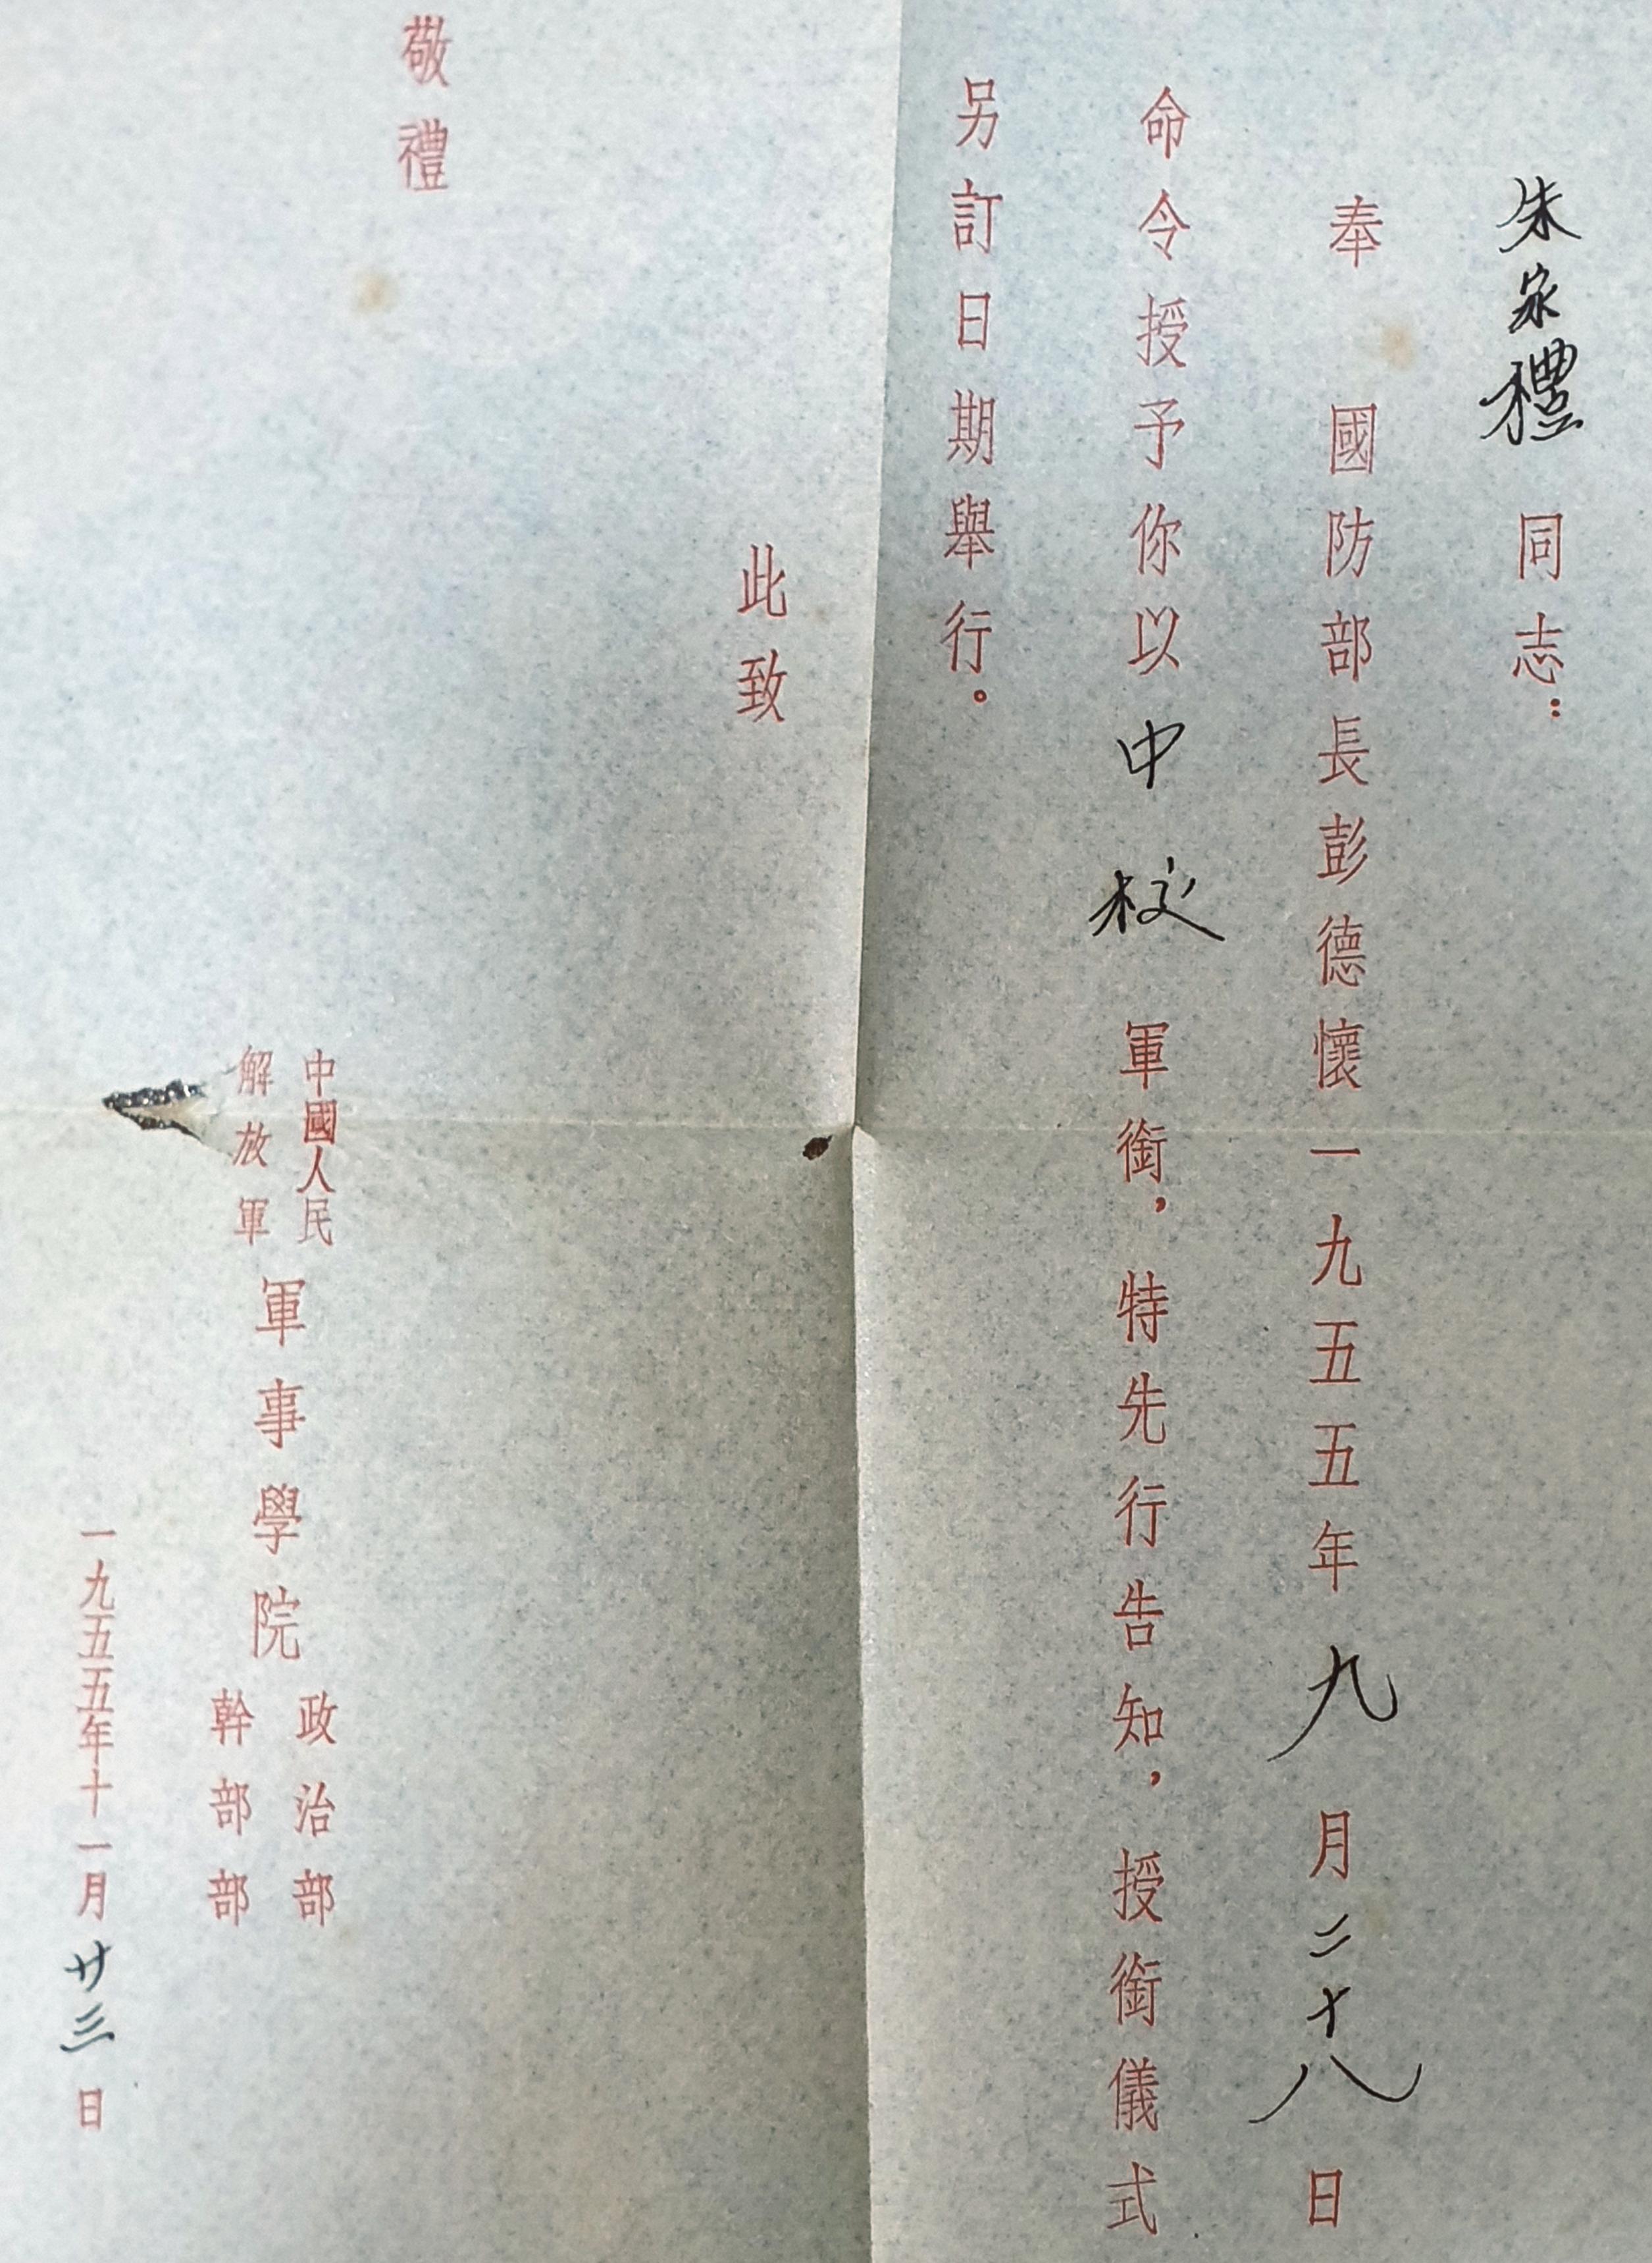 朱家禮同志：
奉國防部長彭德懷一九五五年九月二十八日
命令授予你以中校軍銜，特先行告知，授銜儀式
另訂日期舉行。
此致
敬禮
中國人民
解放軍
軍事學院
政治部
幹部部
一九五五年十一月廿三日